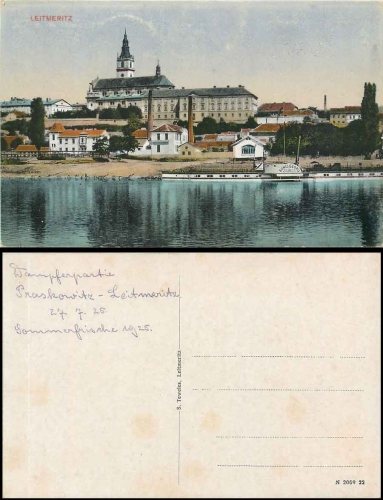 LEITMERITZ
Dampferpartie
Praskowitz - Leitmeritz
27. 7. 25.
Sommerfrische 1925.
S. Toweles, Leitmeritz
N 2069 22